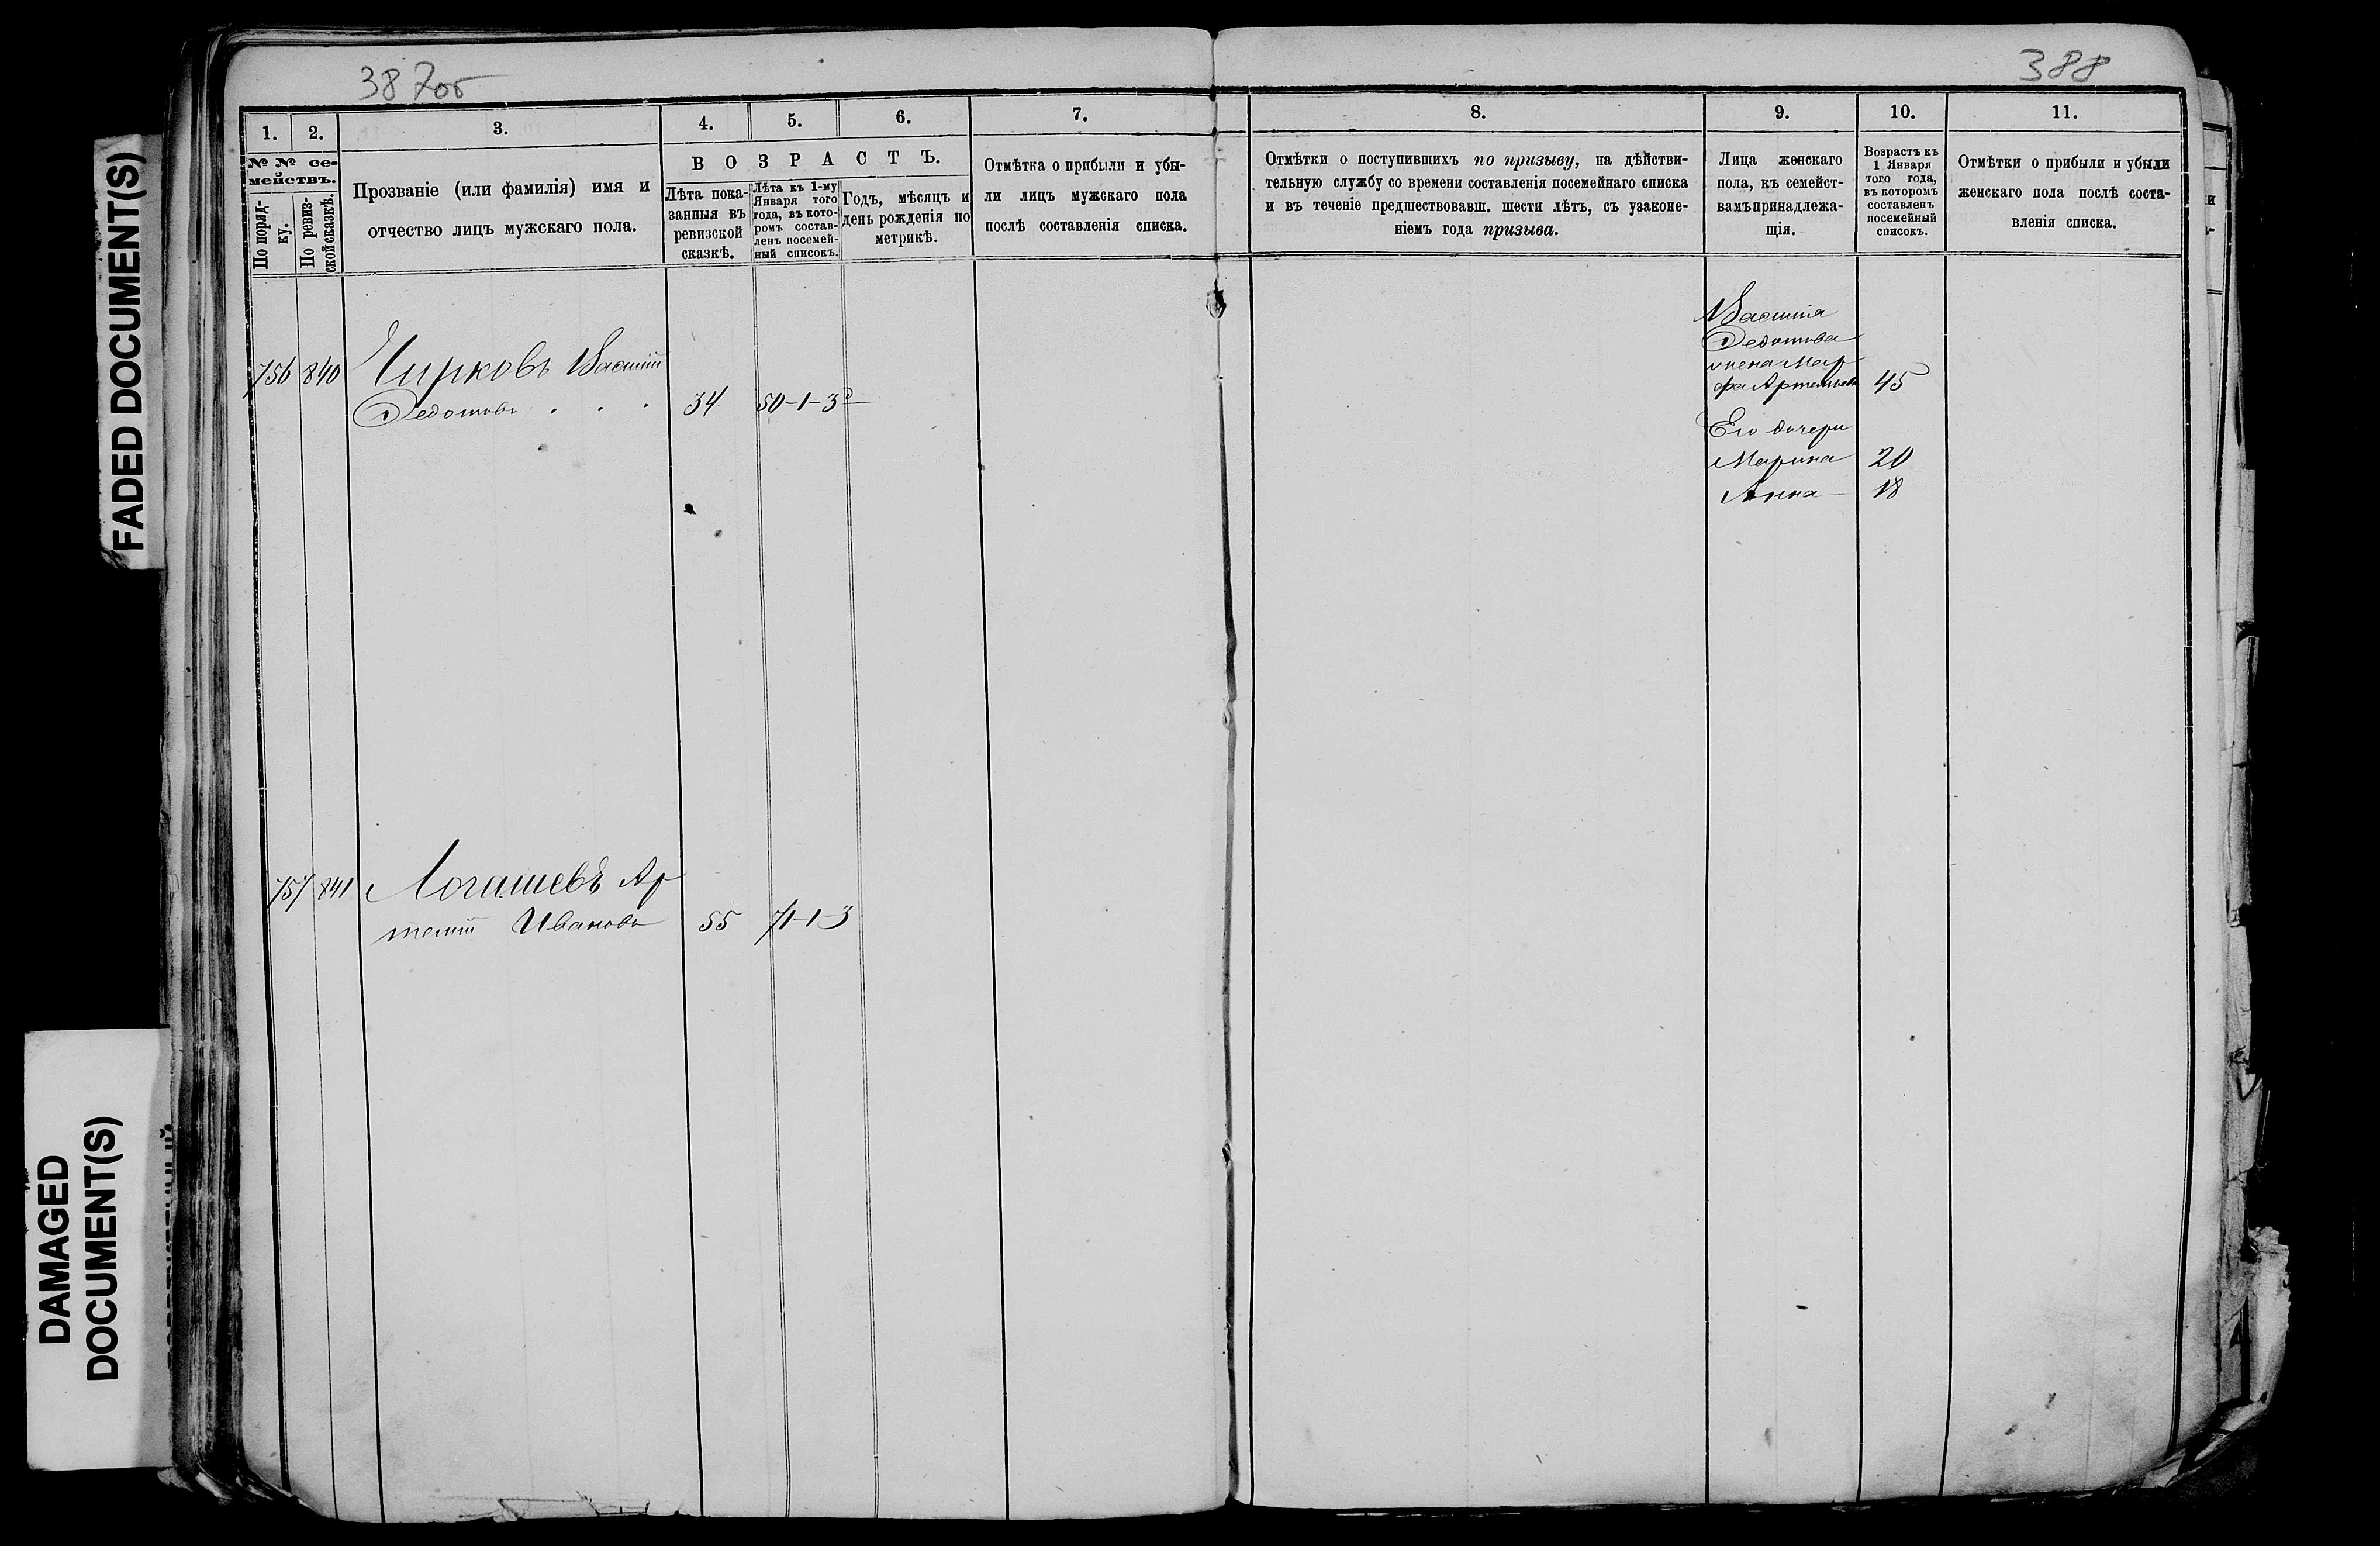 387об
388
1.
2.
3.
4.
5.
6.
7.
8.
9.
10.
11.
№ № се-
мействъ.
По поряд-
ку.
По ревиз-
ской сказкѣ.
Прозваніе (или фамилія) имя и
отчество лицъ мужскаго пола.
ВОЗРАСТЪ.
Лѣта пока-
занныя въ
ревизской
сказкѣ.
Лѣта къ 1-му
Января того
года, въ кото-
ромъ состав-
ленъ посемей-
ный списокъ.
Годъ, мѣсяцъ и
день рожденія по
метрикѣ.
Отмѣтка о прибыли и убы-
ли лицъ мужскаго пола
послѣ составленія списка.
Отмѣтки о поступившихъ по призыву, на дѣйстви-
тельную службу со времени составленія посемейнаго списка
и въ теченіе предшествовавш. шести лѣтъ, съ узаконе-
ніемъ года призыва.
Лица женскаго
пола, къ семейст-
вамъ принадлежа-
щія.
Возрастъ къ
1 Января
того года,
въ которомъ
составленъ
посемейный
списокъ.
Отмѣтки о прибыли и убыли
женскаго пола послѣ соста-
вленія списка.
756 840 Чирковъ Василій
Федотовъ . . . 34 50-1-3
Василія
Федотова
жена Мар
фа Артемьева 45
Его дочери
Марина 20
Анна — 18
757 841 Логашевъ Ар
темій Ивановъ 55 71-1-3
FADED DOCUMENT(S)
DAMAGED
DOCUMENT(S)